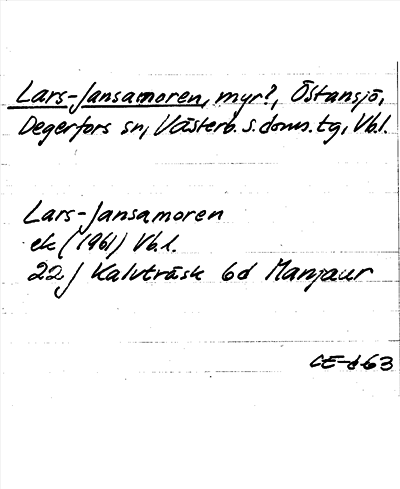 Lars-Jansamoren, myr?, Östansjö,
Degerfors sn, Västerb. s. doms. tg, Vb.l.
Lars-Jansamoren
ek (1961) Vb.l.
22 J Kalvträsk 6d Manjaur
CE-63